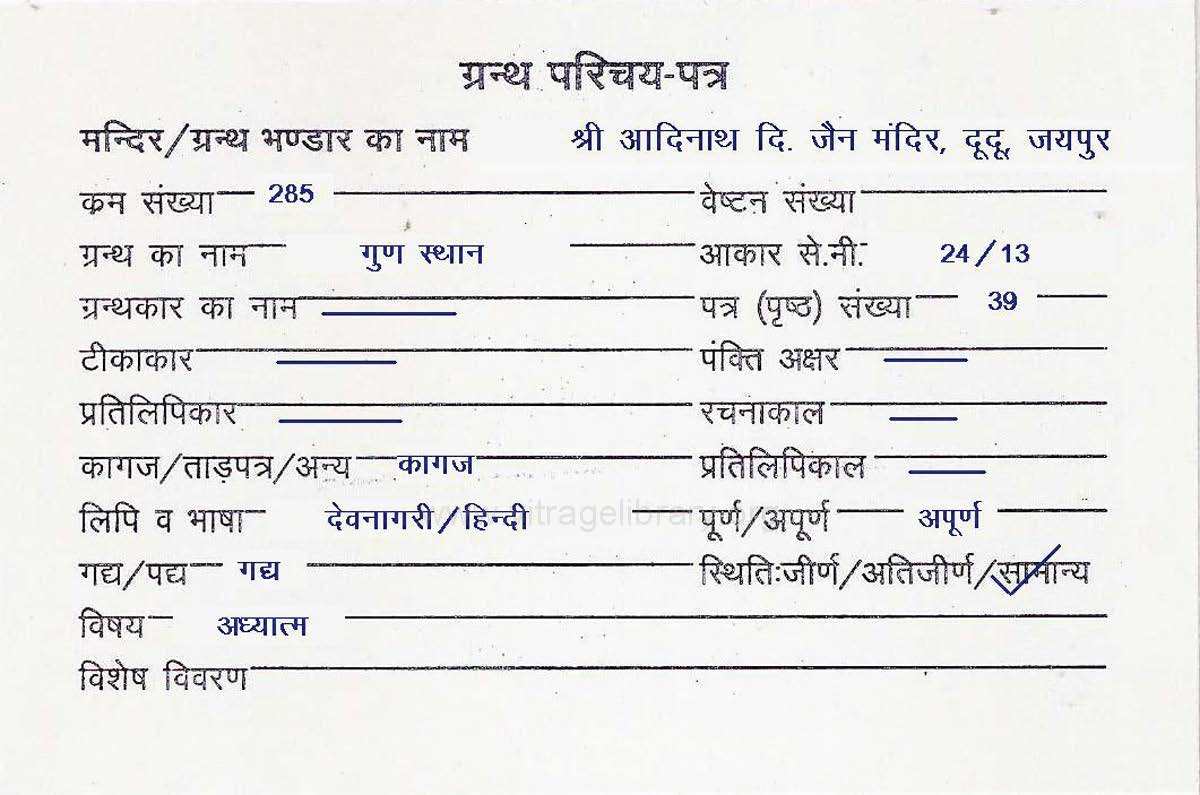 ग्रन्थ परिचय-पत्र
मन्दिर/ग्रन्थ भण्डार का नाम श्री आदिनाथ दि. जैन मंदिर, दूदू, जयपुर
क्रम संख्या 285 वेष्टन संख्या
ग्रन्थ का नाम गुण स्थान आकार से.मी. 24/13
ग्रन्थकार का नाम पत्र (पृष्ठ) संख्या 39
टीकाकार पंक्ति अक्षर
प्रतिलिपिकार रचनाकाल
कागज/ताड़पत्र/अन्य कागज प्रतिलिपिकाल
लिपि व भाषा देवनागरी/हिन्दी पूर्ण/अपूर्ण अपूर्ण
गद्य/पद्य गद्य स्थितिःजीर्ण/अतिजीर्ण/सामान्य
विषय अध्यात्म
विशेष विवरण